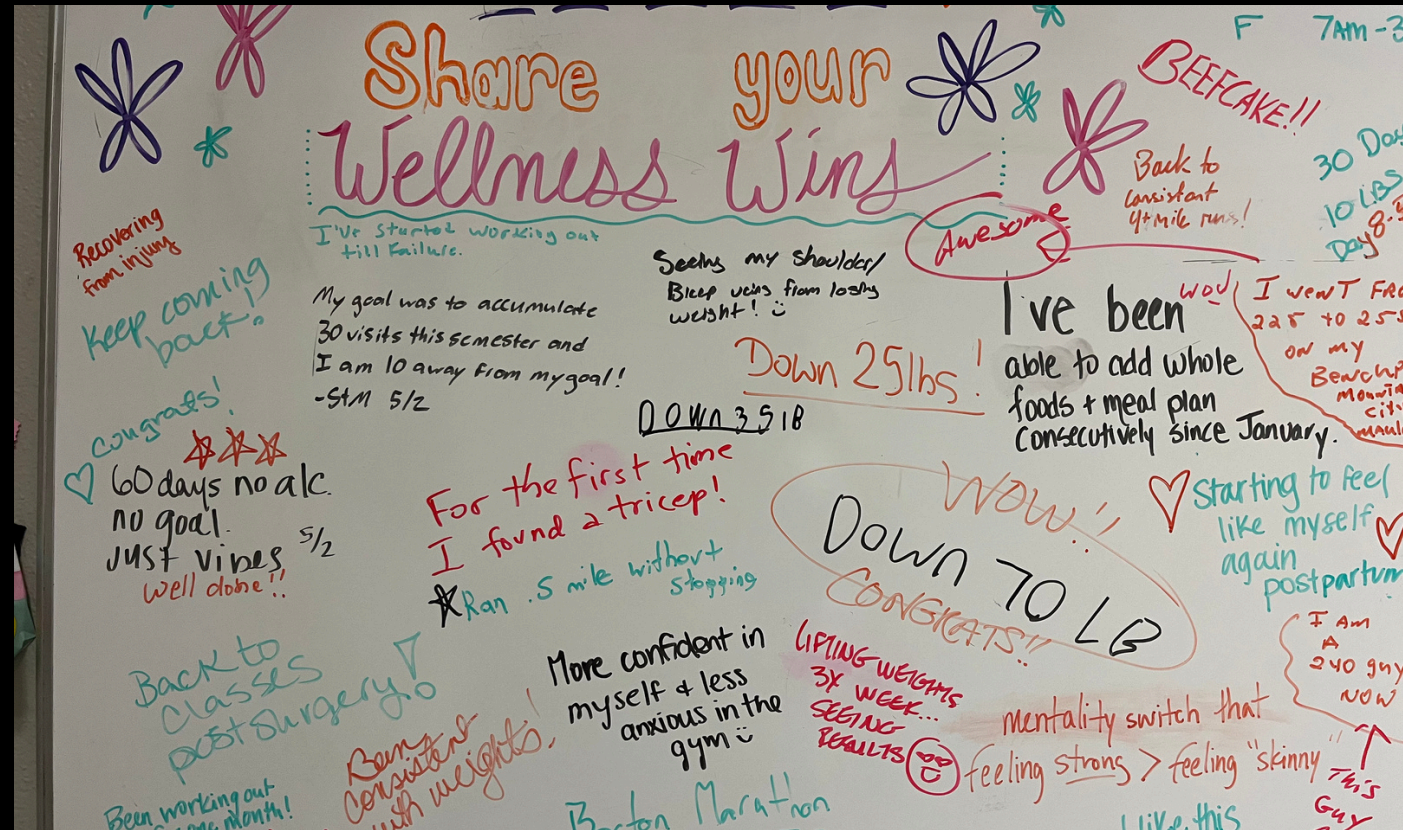 Share your
Wellness Wins
F 7AM - 3
BEEFCAKE!!
Back to
consistent
4+ mile runs!
30 Day
10 LBS
Day 8.
Awesome
I've started working out
till failure.
Recovering
from injury
Keep coming
back!
My goal was to accumulate
30 visits this semester and
I am 10 away from my goal!
-StM 5/2
Seeing my shoulder/
Bicep veins from losing
weight!
Down 25lbs!
Down 35 lB
I've been
able to add whole
foods + meal plan
consecutively since January.
I WENT FRO
225 to 255
ON MY
BENCHP
congrats!
60 days no alc.
no goal.
Just vibes 5/2
well done!!
For the first time
I found a tricep!
Ran .5 mile without
stopping
WOW!!
Down 70 LB
CONGRATS!!
Starting to feel
like myself
again
postpartum
I AM
A
240 guy
NOW
This
Guy
Back to
Classes
post surgery!
More confident in
myself & less
anxious in the
gym
LIFTING WEIGHTS
3X WEEK...
SEEING
RESULTS
mentality switch that
feeling strong > feeling "skinny"
Been
consistent
with weights!
Been working out
one month!
Boston Marathon
I like this